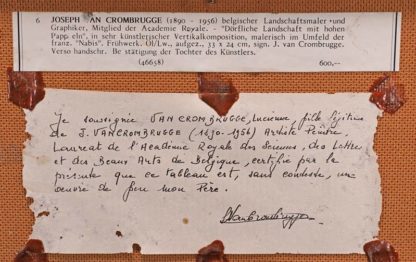 6 JOSEPH VAN CROMBRUGGE (1890 - 1956) belgischer Landschaftsmaler und
Graphiker, Mitglied der Academie Royale. - "Dörfliche Landschaft mit hohen
Pappeln", in sehr künstlerischer Vertikalkomposition, malerisch im Umfeld der
franz. "Nabis". Frühwerk. Öl/Lw., aufgez., 33 x 24 cm, sign. J. van Crombrugge.
Verso handschr. Be stätigung der Tochter des Künstlers.
(46658) 600,—
Je soussignée VAN CROMBRUGGE, Lucienne, fille légitime
de J. VAN CROMBRUGGE (1890-1956) Artiste Peintre,
Laureat de l'Académie Royale des Sciences, des Lettres
et des Beaux Arts de Belgique, certifie par la
présente que ce tableau est, sans conteste, une
oeuvre de feu mon Père.
LVanCrombrugge